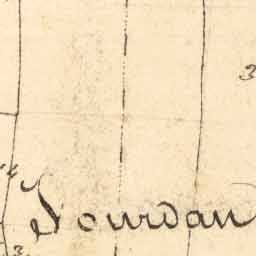 3
Jourdan
3